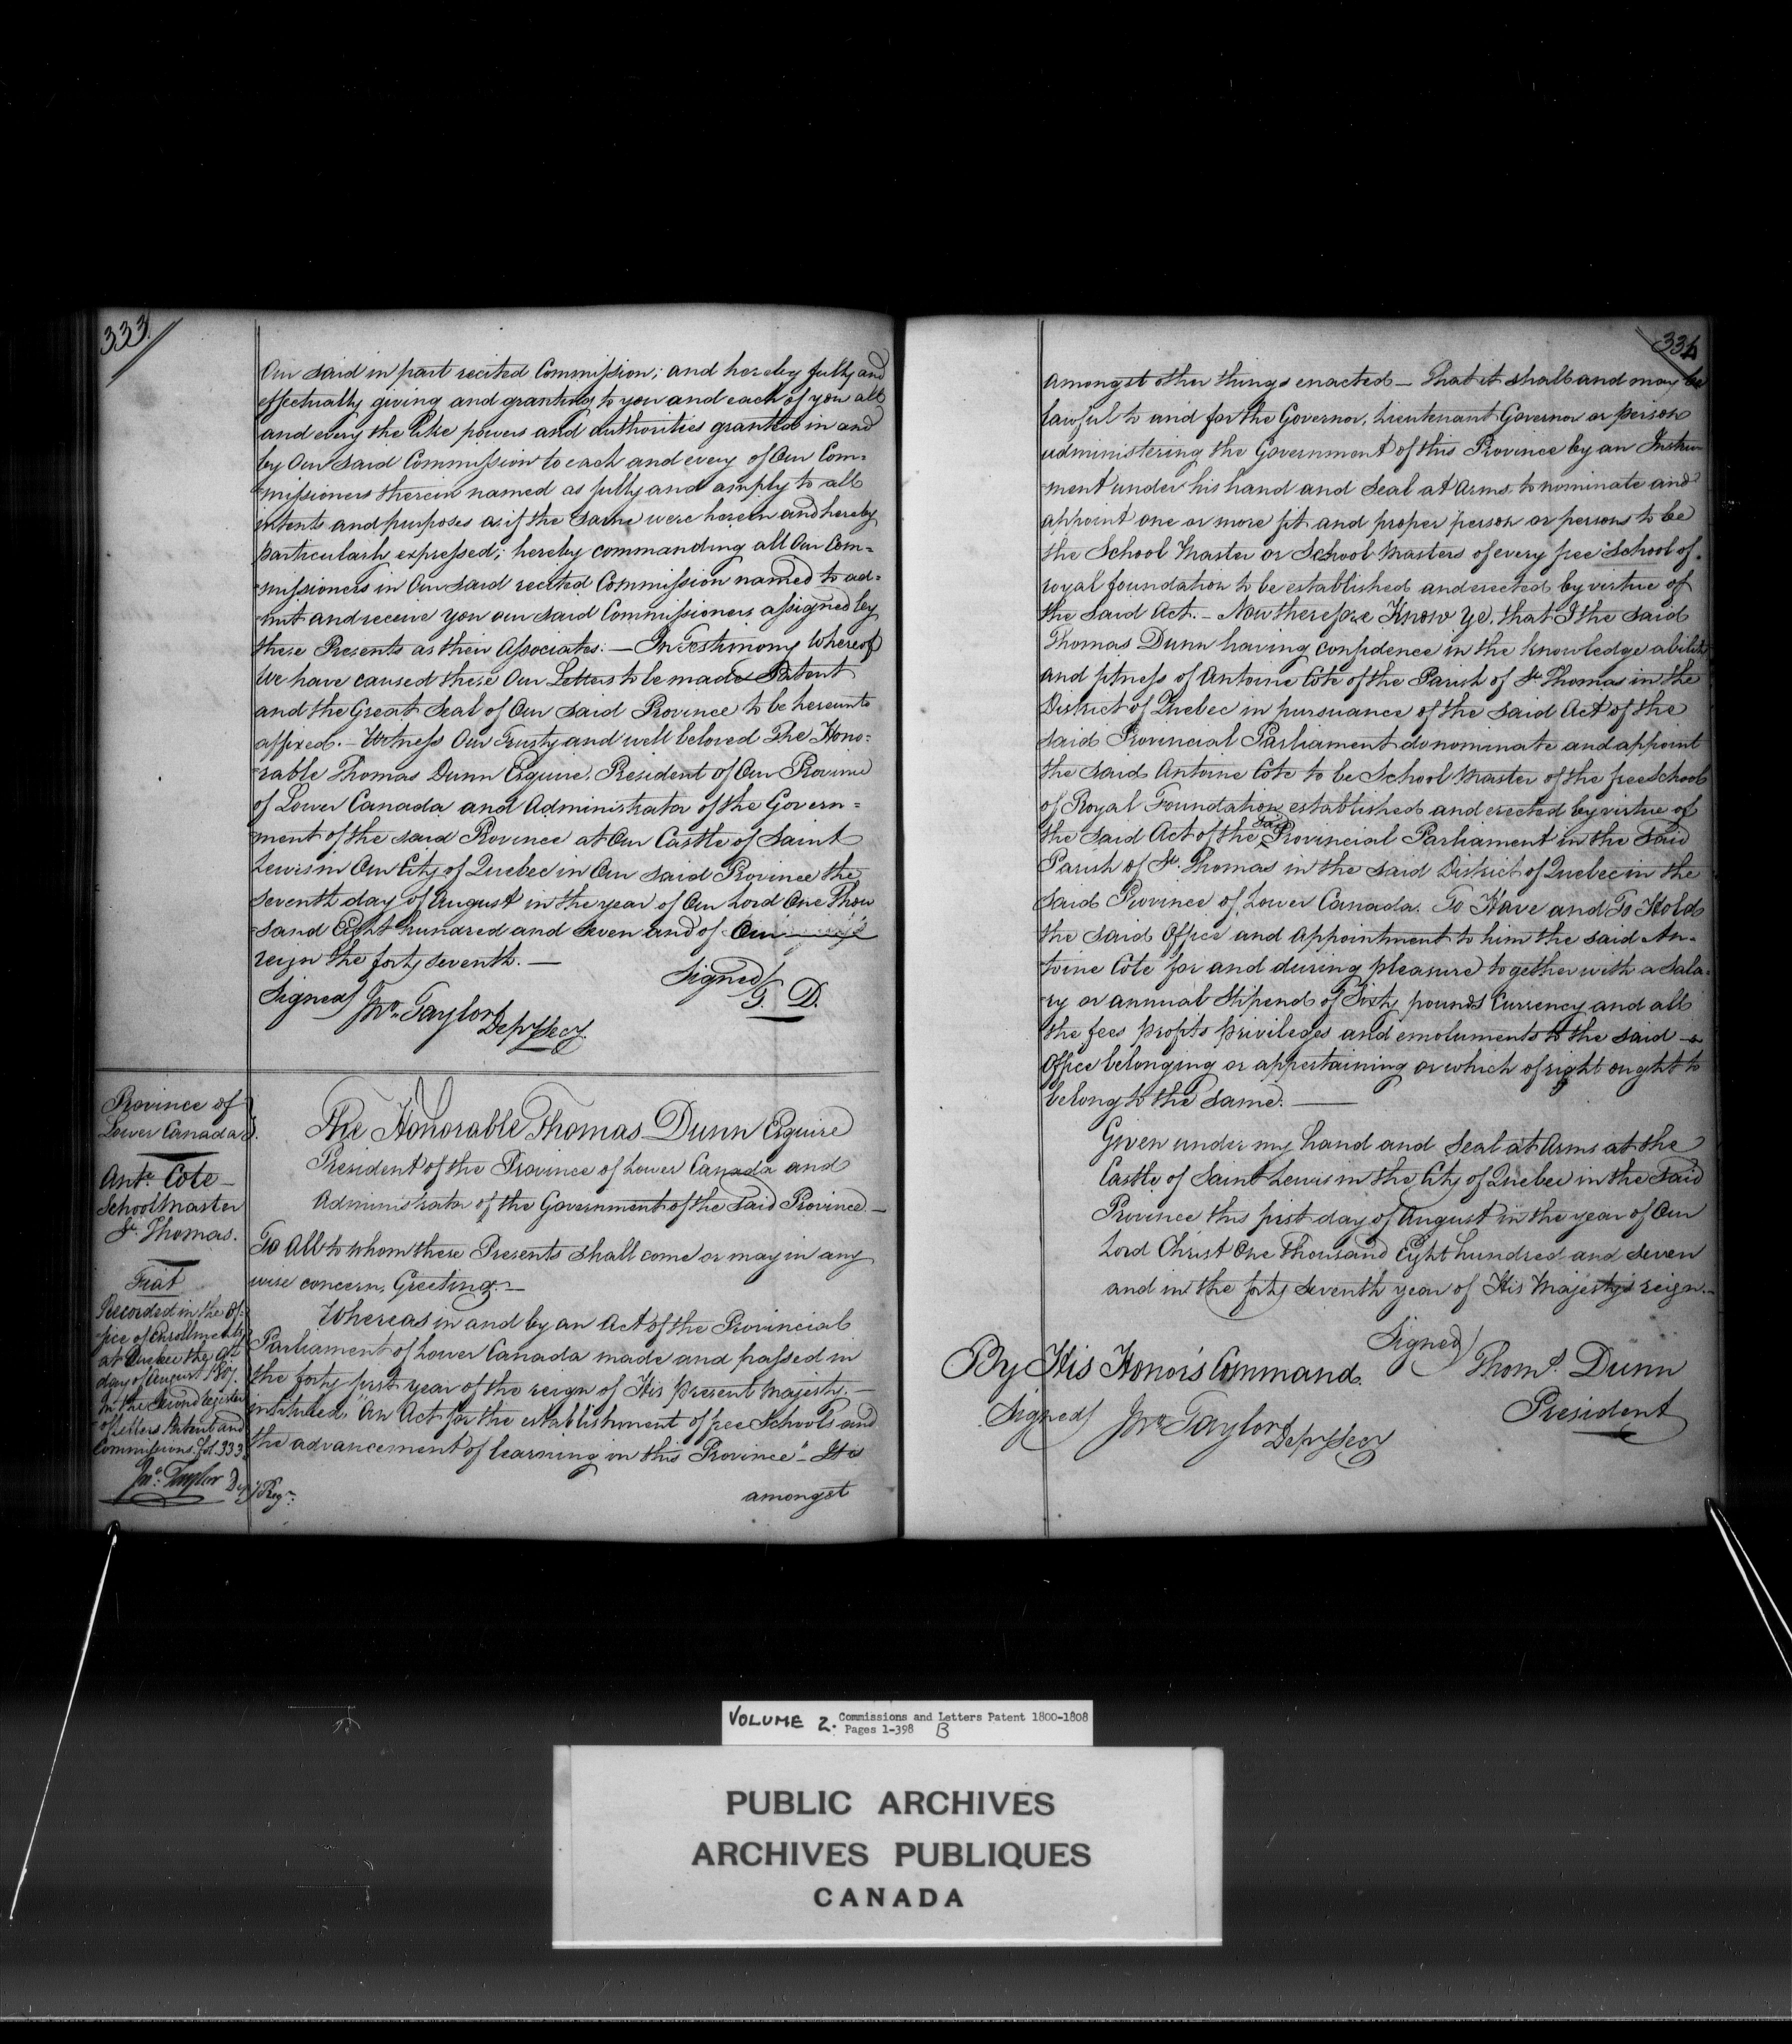 333
Our said in part recited Commission; and hereby fully and
effectually giving and granting to you and each of you all
and every the like powers and authorities granted in and
by Our said Commission to each and every of Our Com=
missioners therein named as fully and amply to all
intents and purposes as if the same were herein and hereby
particularly expressed; hereby commanding all Our Com=
missioners in Our said recited Commission named to ad=
mit and receive you our said Commissioners assigned by
these Presents as their Associates. — In Testimony Whereof
We have caused these Our Letters to be made Patent
and the Great Seal of Our said Province to be hereunto
affixed. — Witness Our Trusty and well beloved The Hono=
rable Thomas Dunn Esquire, President of Our Province
of Lower Canada and Administrator of the Govern=
ment of the said Province at Our Castle of Saint
Lewis in Our City of Quebec in Our said Province the
seventh day of August in the year of Our Lord One Thou
sand Eight hundred and seven and of Our
reign the forty seventh. —
Signed/ T. D.
Signed/ Jno. Taylor
Depy Secy.
Province of
Lower Canada
Ante Cote —
School Master
St. Thomas.
Fiat
Recorded in the Of=
fice of Enrollments
at Quebec the 9th
day of August 1807.
In the Second Register
of Letters Patent and
Commissions Fol. 333
Jno. Taylor Depy Regr.
The Honorable Thomas Dunn Esquire
President of the Province of Lower Canada and
Administrator of the Government of the said Province —
To All to whom these Presents shall come or may in any
wise concern, Greeting. —
Whereas in and by an Act of the Provincial
Parliament of Lower Canada made and passed in
the forty first year of the reign of His present Majesty. —
intituled, "An Act for the establishment of free Schools and
the advancement of learning in this Province" - It is
amongst
334
amongst other things enacted — That it shall and may be
lawful to and for the Governor, Lieutenant Governor or person
administering the Government of this Province by an Instru
ment under his hand and Seal at Arms to nominate and
appoint one or more fit and proper person or persons to be
the School Master or School Masters of every free School of
royal foundation to be established and erected by virtue of
the said Act. — Now therefore Know Ye, that I the said
Thomas Dunn having confidence in the knowledge ability
and fitness of Antoine Cote of the Parish of St. Thomas in the
District of Quebec in pursuance of the said Act of the
said Provincial Parliament do nominate and appoint
the said Antoine Cote to be School Master of the free School
of Royal Foundation established and erected by virtue of
the said Act of the said Provincial Parliament in the said
Parish of St. Thomas in the said District of Quebec in the
said Province of Lower Canada. To Have and To Hold
the said Office and Appointment to him the said An=
toine Cote for and during pleasure together with a Sala=
ry or annual Stipend of Sixty pounds Currency and all
the fees profits privileges and emoluments to the said
Office belonging or appertaining or which of right ought to
belong to the same. —
Given under my hand and Seal at Arms at the
Castle of Saint Lewis in the City of Quebec in the said
Province this first day of August in the year of Our
Lord Christ One Thousand Eight hundred and seven
and in the forty seventh year of His Majesty's reign. —
Signed/ Thoms. Dunn
President
By His Honor's Command.
Signed/ Jno. Taylor
Depy Secy
VOLUME 2. Commissions and Letters Patent 1800-1808
Pages 1-398 B
PUBLIC ARCHIVES
ARCHIVES PUBLIQUES
CANADA